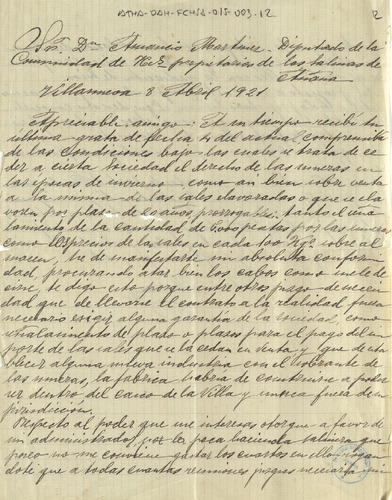 ATHA-DAH-FCHSA-015-003-12
2
Sr. Dn. Amancio Martinez. Diputado de la
Comunidad de Her.s propietarios de las salinas de
Añana
Villanueva 8 Abril 1921
Apreciable amigo: A su tiempo recibí su
ultima grata de fecha 4 del actual, comprensiva
de las condiciones bajo las cuales se trata de ce
der a cierta Sociedad el derecho de las mueras en
las epocas de invierno, como an bien sobre venta
a la misma de las sales elavoradas o que se ela
voren por plazo de 20 años, prorrogable; tanto el
lamiento de la cantidad de 6.000 pesetas por las mueras
como los precios de las sales en cada 100 Kgs sobre al
macen, he de manifestarte mi absoluta confor
midad, procurando atar bien los cabos como suele de
cirse, te digo esto porque entre otros juzgo de necesi
dad que de llevarse el contrato a la realidad, fuera
necesario exigir alguna garantia de la Sociedad, como
señalamiento de plazo o plazos para el pago del im
porte de las sales que se la cedan en venta, y que de esta
blecer alguna nueva industria con el sobrante de
las mueras, la fabrica habria de construirse a poder
ser dentro del casco de la Villa y nunca fuera de su
jurisdicción.
Respecto al poder que me interesas otorgue a favor de
un administrador, por la poca hacienda salinera que
poseo no me conviene gastar los cuartos en ello, rogan
dote que a todas cuantas reuniones juzgues necesaria mi